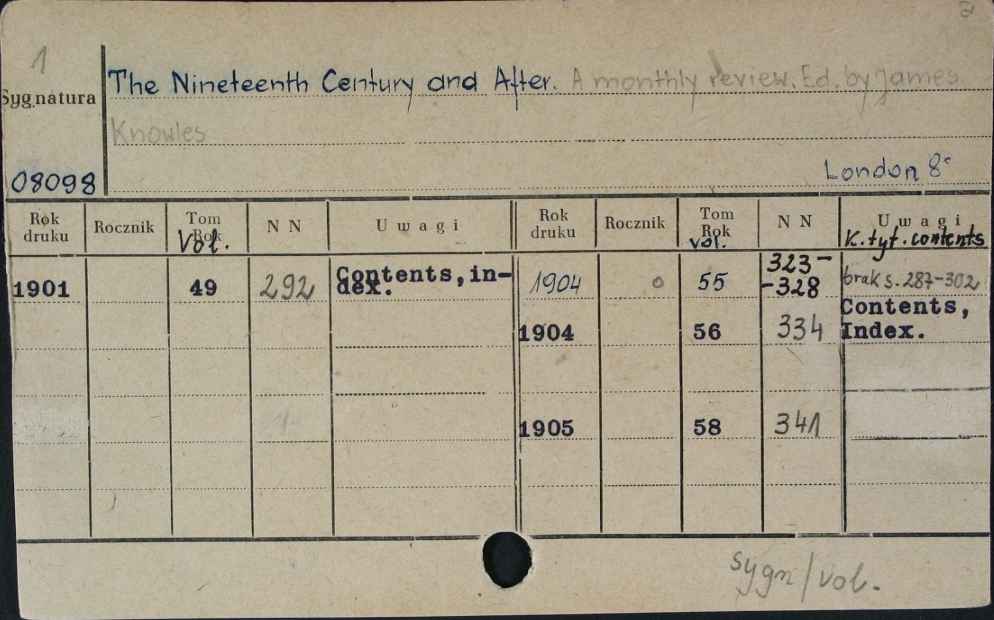 1
Sygnatura
The Nineteenth Century and After. A monthly review. Ed. by James
Knowles
08098
London 8°
Rok druku Rocznik Tom Rok Vol. N N Uwagi Rok druku Rocznik Tom Rok vol. N N Uwagi K. tyt. contents
1901 49 292 Contents, in-
dex.
1904 55 323-
-328 brak s. 287-302
1904 56 334 Contents,
Index.
1905 58 341
sygn/vol.